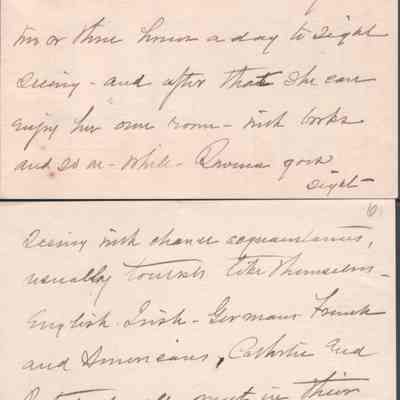 two or three hours a day to sight
seeing - and after that she can
enjoy her own room - with books
and so on - while - Rowena goes
sight -
6
seeing with chance acquaintances,
usually tourists like themselves -
English - Irish - Germans French
and Americans, Catholic and
meet in their